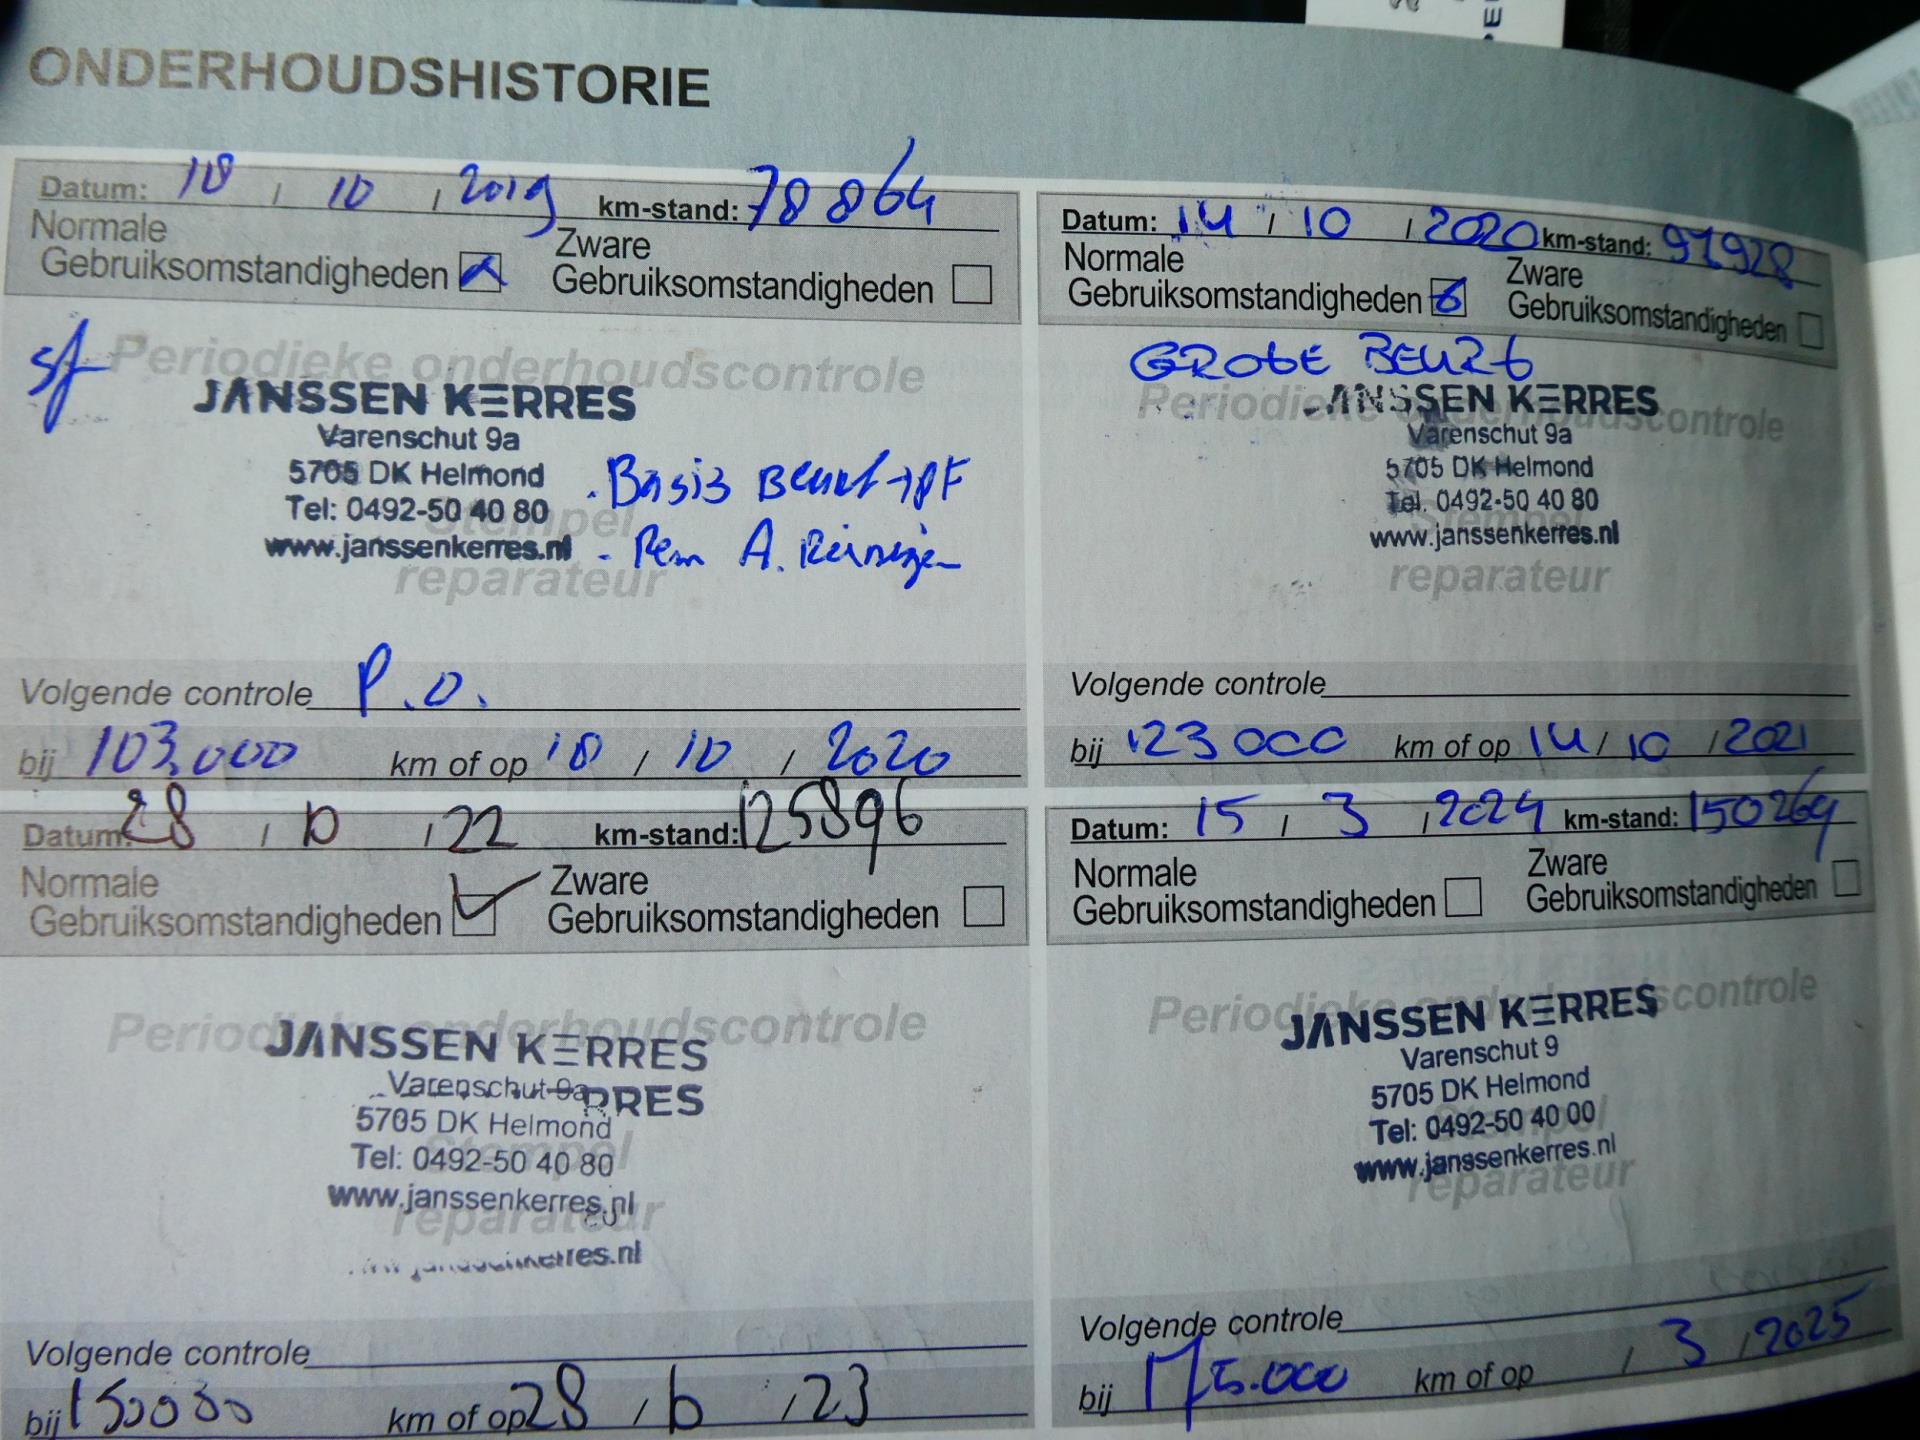 ONDERHOUDSHISTORIE
Datum: 18 / 10 / 2019 km-stand: 78864
Normale Gebruiksomstandigheden
Zware Gebruiksomstandigheden
Periodieke onderhoudscontrole
JANSSEN KERRES
Varenschut 9a
5705 DK Helmond
Tel: 0492-50 40 80
www.janssenkerres.nl
Stempel
reparateur
- Basis Beurt + PF
- Rem A. Reinigen
Volgende controle P.O.
bij 103.000 km of op 18 / 10 / 2020
Datum: 14 / 10 / 2020 km-stand: 97928
Normale Gebruiksomstandigheden
Zware Gebruiksomstandigheden
GROTE BEURT
Periodieke onderhoudscontrole
JANSSEN KERRES
Varenschut 9a
5705 DK Helmond
Tel. 0492-50 40 80
www.janssenkerres.nl
Stempel
reparateur
Volgende controle
bij 123000 km of op 14 / 10 / 2021
Datum: 28 / / 22 km-stand: 125896
Normale Gebruiksomstandigheden
Zware Gebruiksomstandigheden
Periodieke onderhoudscontrole
JANSSEN KERRES
Varenschut 9a
RRES
5705 DK Helmond
Tel: 0492-50 40 80
www.janssenkerres.nl
Stempel
reparateur
www.janssenkerres.nl
Volgende controle
bij 150000 km of op 28 / / 23
Datum: 15 / 3 / 2024 km-stand: 150264
Normale Gebruiksomstandigheden
Zware Gebruiksomstandigheden
Periodieke onderhoudscontrole
JANSSEN KERRES
Varenschut 9
5705 DK Helmond
Tel: 0492-50 40 00
www.janssenkerres.nl
Stempel
reparateur
Volgende controle
bij 175.000 km of op / 3 / 2025